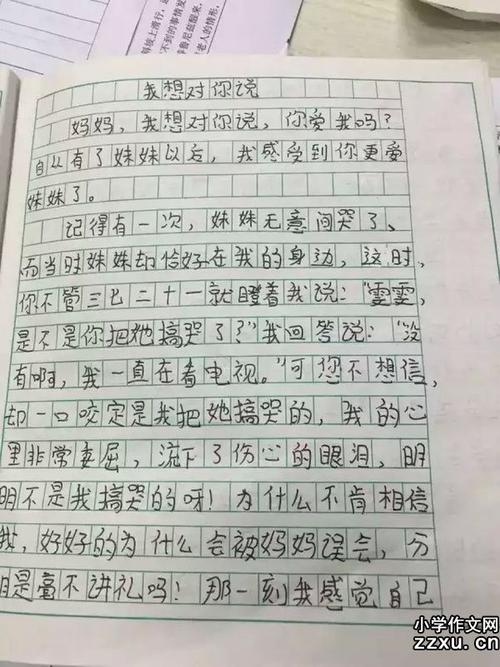 我想对你说
妈妈，我想对你说，你爱我吗？
自从有了妹妹以后，我感受到你更爱
妹妹了。
记得有一次，妹妹无意间哭了、
而当时妹妹却恰好在我的身边，这时，
你不管三七二十一就瞪着我说：“雯雯，
是不是你把她搞哭了？”我回答说：“没
有啊，我一直在看电视。”可您不想信，
却一口咬定是我把她搞哭的，我的心
里非常委屈，流下了伤心的眼泪，明
明不是我搞哭的呀！为什么不肯相信
我，好好的为什么会被妈妈误会，分
明是毫不讲礼吗！那一刻我感觉自己
小学作文网
zzxu.cn